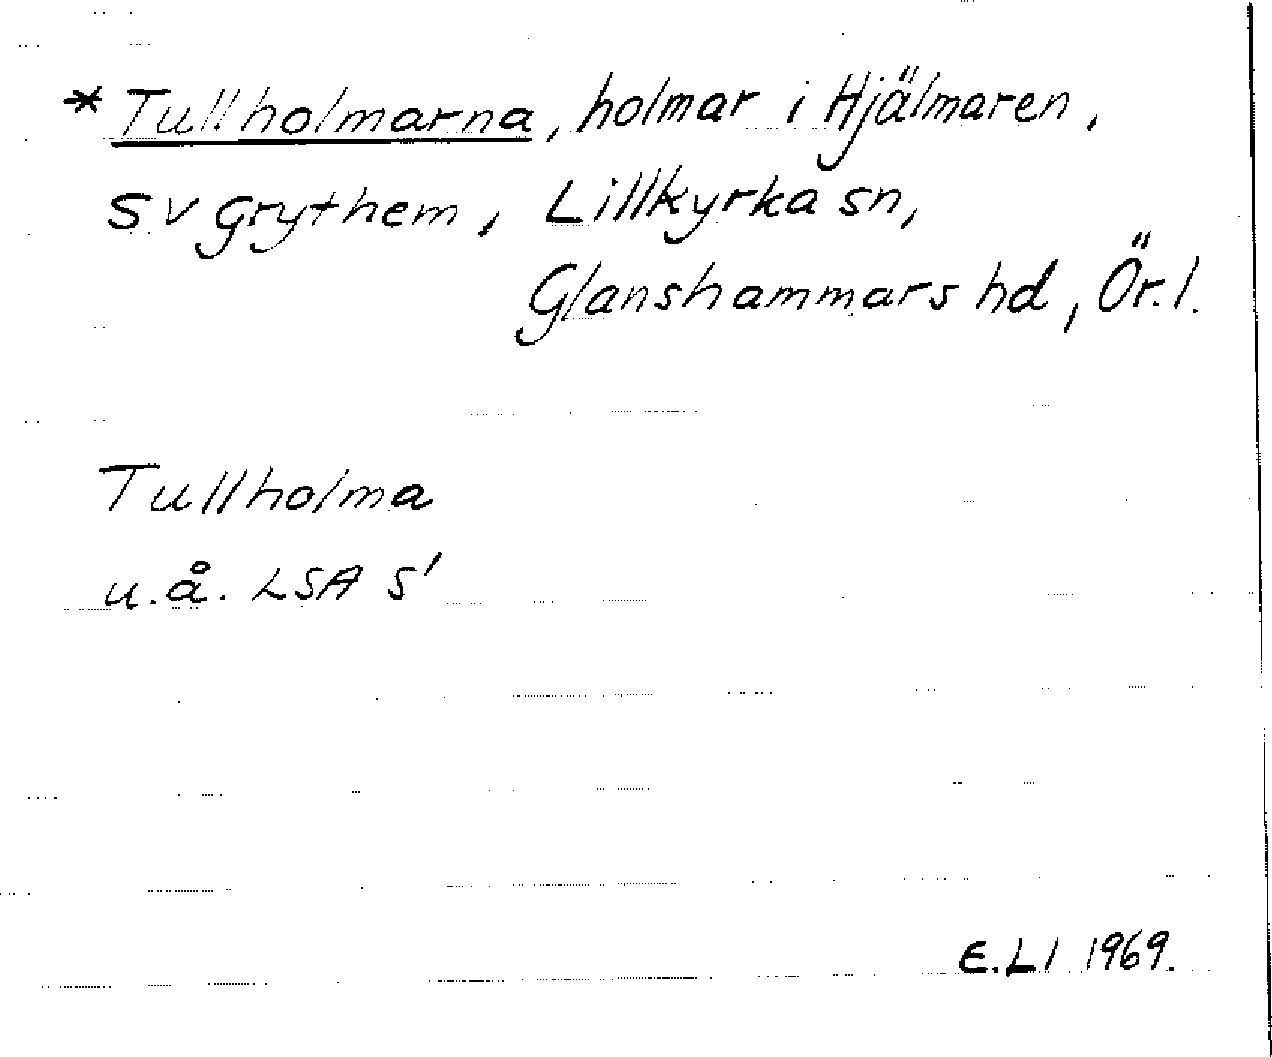 * Tullholmarna, holmar i Hjälmaren,
SV Grythem, Lillkyrka sn,
Glanshammars hd, Ör. l.
Tullholma
u.å. LSA S'
E.Ll 1969.